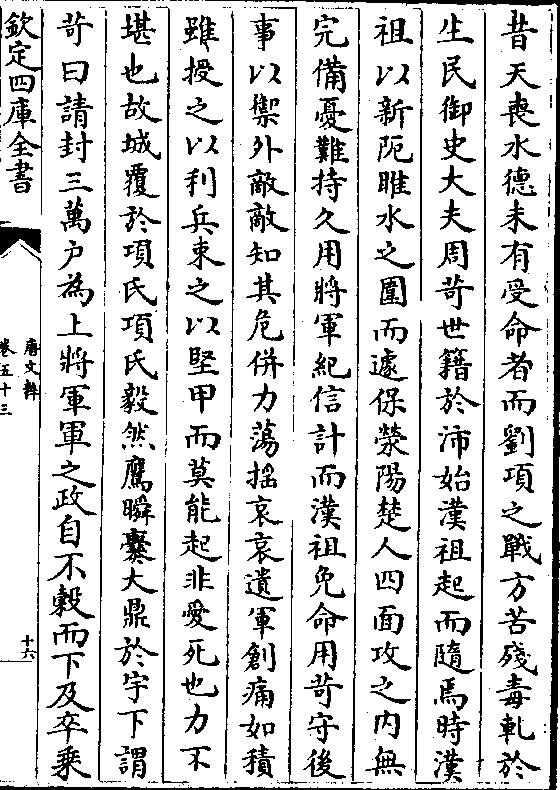 昔天喪水德未有受命者而劉項之戰方苦殘毒軋於
生民御史大夫周苛世籍於沛始漢祖起而隨焉時漢
祖以新阨睢水之圍而遽保滎陽楚人四面攻之内無
完備憂難持久用將軍紀信計而漢祖免命用苛守後
事以禦外敵敵知其危併力蕩揺哀哀遺軍創痛如積
雖授之以利兵束之以堅甲而莫能起非愛死也力不
堪也故城覆於項氏項氏毅然鷹瞬爨大鼎於宇下謂
苛曰請封三萬户為上將軍軍之政自不榖而下及卒乗
欽定四庫全書
唐文粹
卷五十三
十六